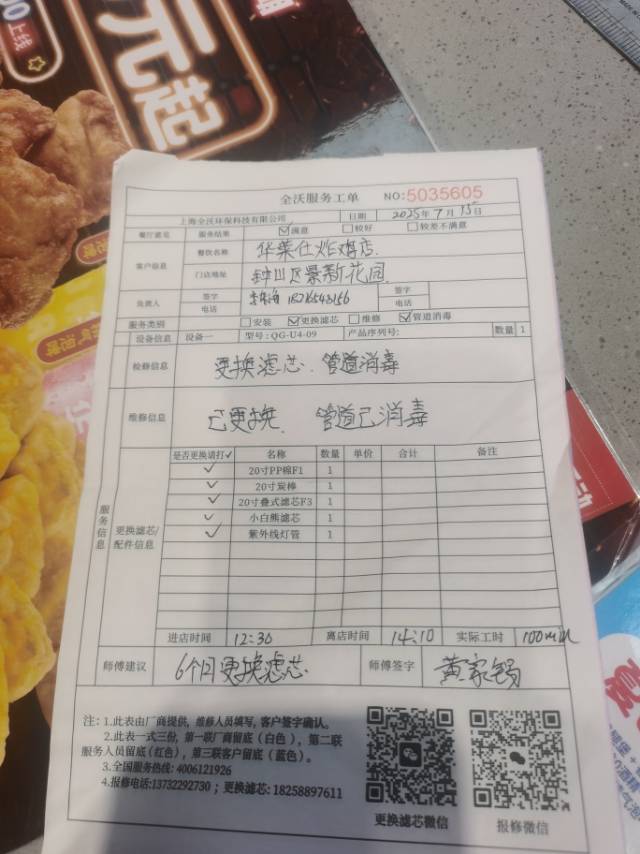 元起
上线
全沃服务工单 NO:5035605
上海全沃环保科技有限公司 日期 2025年7月15日
餐厅意见 服务结果 ☑满意 □较好 □较差不满意
客户信息 餐饮名称 华莱仕炸鸡店
门店地址 钟山区景新花园
负责人 签字 签字
电话 18216543156 电话
服务类别 □安装 ☑更换滤芯 □维修 ☑管道消毒
设备信息 设备一 型号:QG-U4-09 产品序列号: 数量 1
检修信息 更换滤芯、管道消毒
维修信息 已更换、管道已消毒
服务信息
更换滤芯/配件信息
是否更换请打✓ 名称 数量 单价 合计 备注
✓ 20寸PP棉F1 1
✓ 20寸炭棒 1
✓ 20寸叠式滤芯F3 1
✓ 小白熊滤芯 1
✓ 紫外线灯管 1
进店时间 12:30 离店时间 14:10 实际工时 100min
师傅建议 6个月更换滤芯 师傅签字 黄家锡
注:1.此表由厂商提供,维修人员填写,客户签字确认。
2.此表一式三份,第一联厂商留底(白色),第二联
服务人员留底(红色),第三联客户留底(蓝色)。
3.全国服务热线:4006121926
4.报修电话:13732292730;更换滤芯:18258897611
更换滤芯微信 报修微信